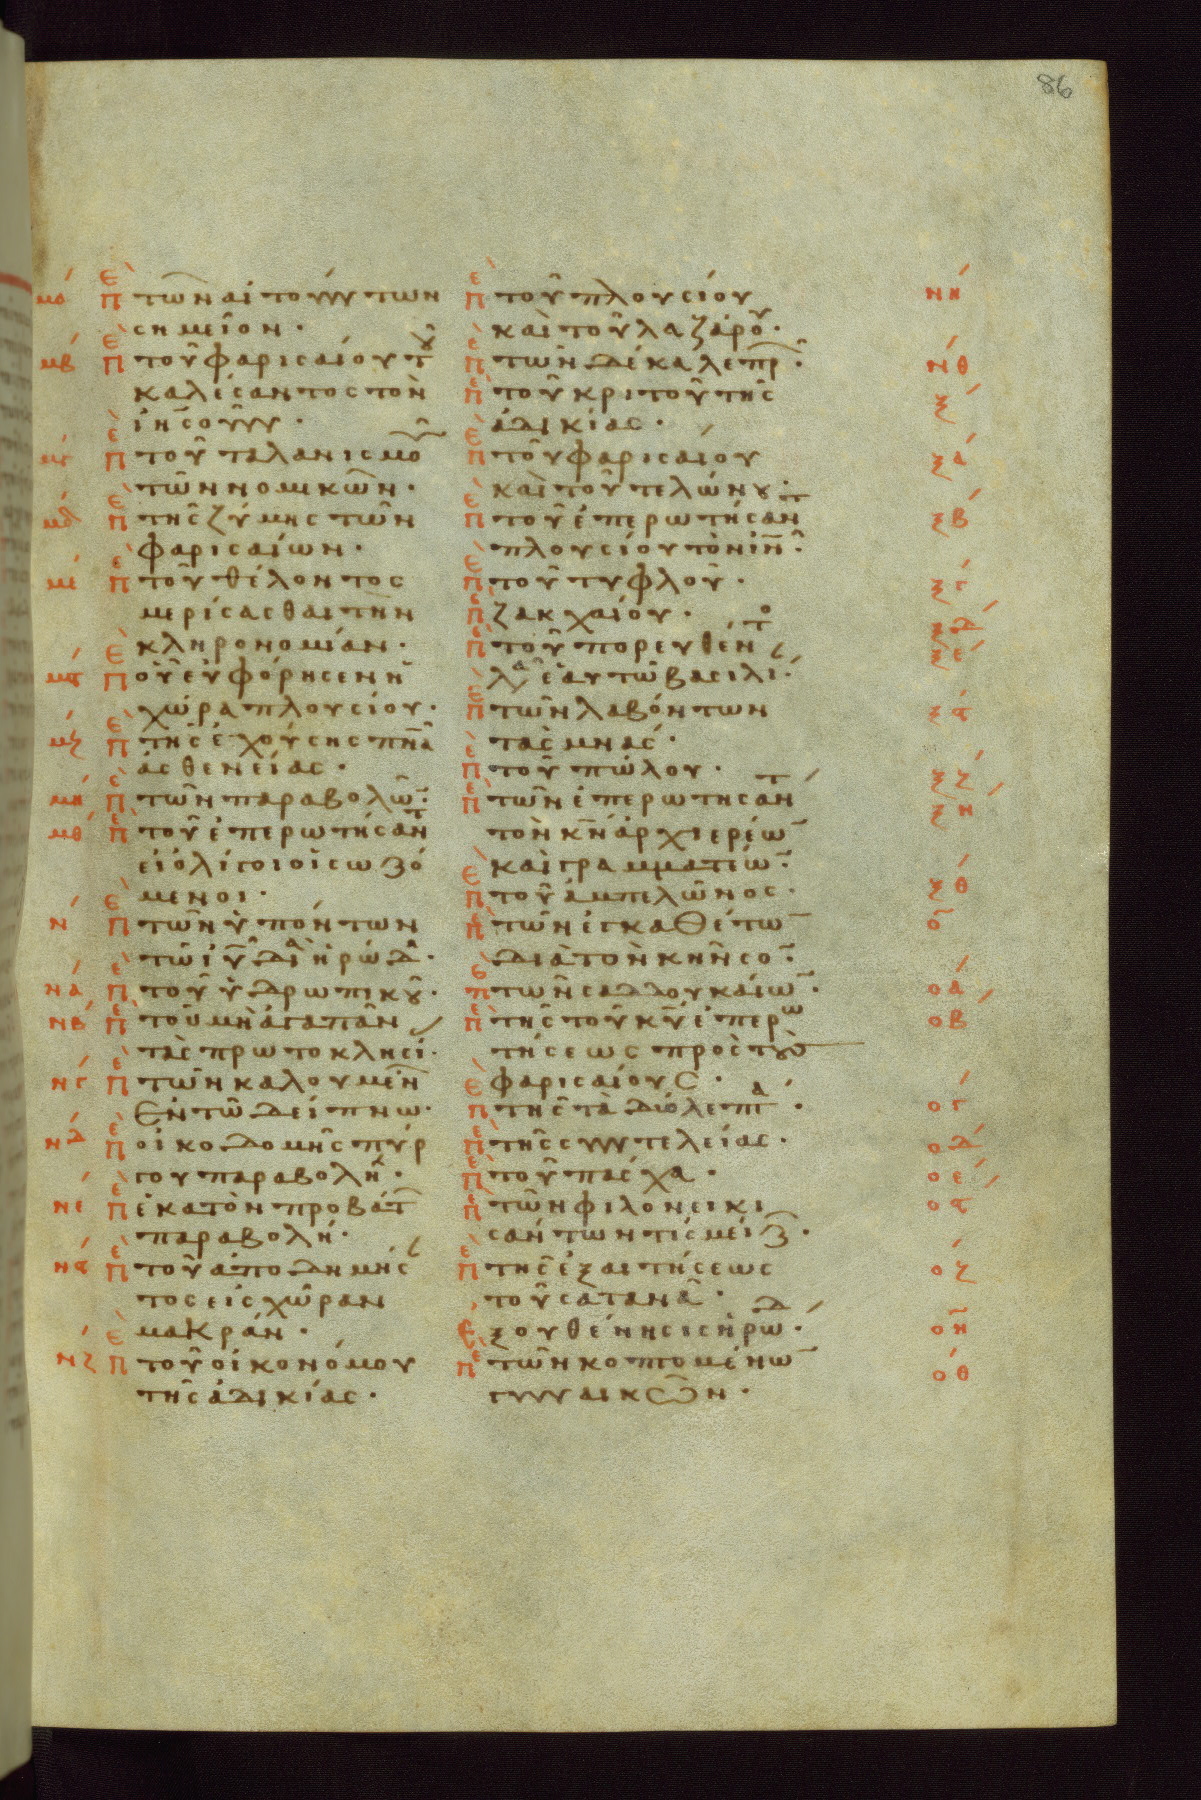 86
μα πε τῶν αἰτούντων
σημεῖον·
μβ πε τοῦ φαρισαίου τοῦ
καλέσαντος τὸν
ἰησοῦν·
μγ πε τοῦ ταλανισμοῦ
τῶν νομικῶν·
μδ πε τῆς ζύμης τῶν
φαρισαίων·
με πε τοῦ θέλοντος
μερίσασθαι τὴν
κληρονομίαν·
μϛ πε οὗ εὐφόρησεν ἡ
χώρα πλουσίου·
μζ πε τῆς ἐχούσης πνα
ἀσθενείας·
μη πε τῶν παραβολῶ·
μθ πε τοῦ ἐπερωτήσαντ
εἰ ὀλίγοι οἱ σωζό
μενοι·
ν πε τῶν εἰπόντων
τῶ ιυ δι ἡρώδ·
να πε τοῦ ὑδρωπικοῦ·
νβ πε τοῦ μὴ ἀγαπᾶν
τὰς πρωτοκλησί·
νγ πε τῶν καλουμέν
ἐν τῶ δείπνω·
νδ πε οἰκοδομῆς πύρ
γου παραβολή·
νε πε ἑκατὸν προβάτ
παραβολή·
νϛ πε τοῦ ἀποδημής
τος εἰς χῶραν
μακράν·
νζ πε τοῦ οἰκονόμου
τῆς ἀδικίας·
πε τοῦ πλουσίου νη
καὶ τοῦ λαζάρου·
πε τῶν δέκα λεπρ· νθ
πε τοῦ κριτοῦ τῆς ξ
ἀδικίας·
πε τοῦ φαρισαίου ξα
καὶ τοῦ τελώνου·
πε τοῦ ἐπερωτήσαντ ξβ
πλουσίου τὸν ιν·
πε τοῦ τυφλοῦ· ξγ
πε ζακχαίου· ξδ
πε τοῦ πορευθέντο ξε
λα ἑαυτῶ βασιλεί·
πε τῶν λαβόντων ξϛ
τὰς μνᾶς·
πε τοῦ πώλου· ξζ
πε τῶν ἐπερωτησάντ ξη
τὸν κν ἀρχιερέω
καὶ γραμματέω·
πε τοῦ ἀμπελῶνος· ξθ
πε τῶν ἐγκαθέτω ο
διὰ τὸν κῆνσο·
πε τῶν σαδδουκαίω· οα
πε τῆς τοῦ κυ ἐπερω οβ
τήσεως πρὸς τοὺς
φαρισαίους·
πε τῆς τὰ δύο λεπτα· ογ
πε τῆς συντελείας· οδ
πε τοῦ πάσχα· οε
πε τῶν φιλονεικη οϛ
σάντων τίς μείζ·
πε τῆς ἐξαιτήσεως οζ
τοῦ σατανᾶ·
ἐξουθένησις ἡρώδ· οη
πε τῶν κοπτομένω οθ
γυναικῶν·